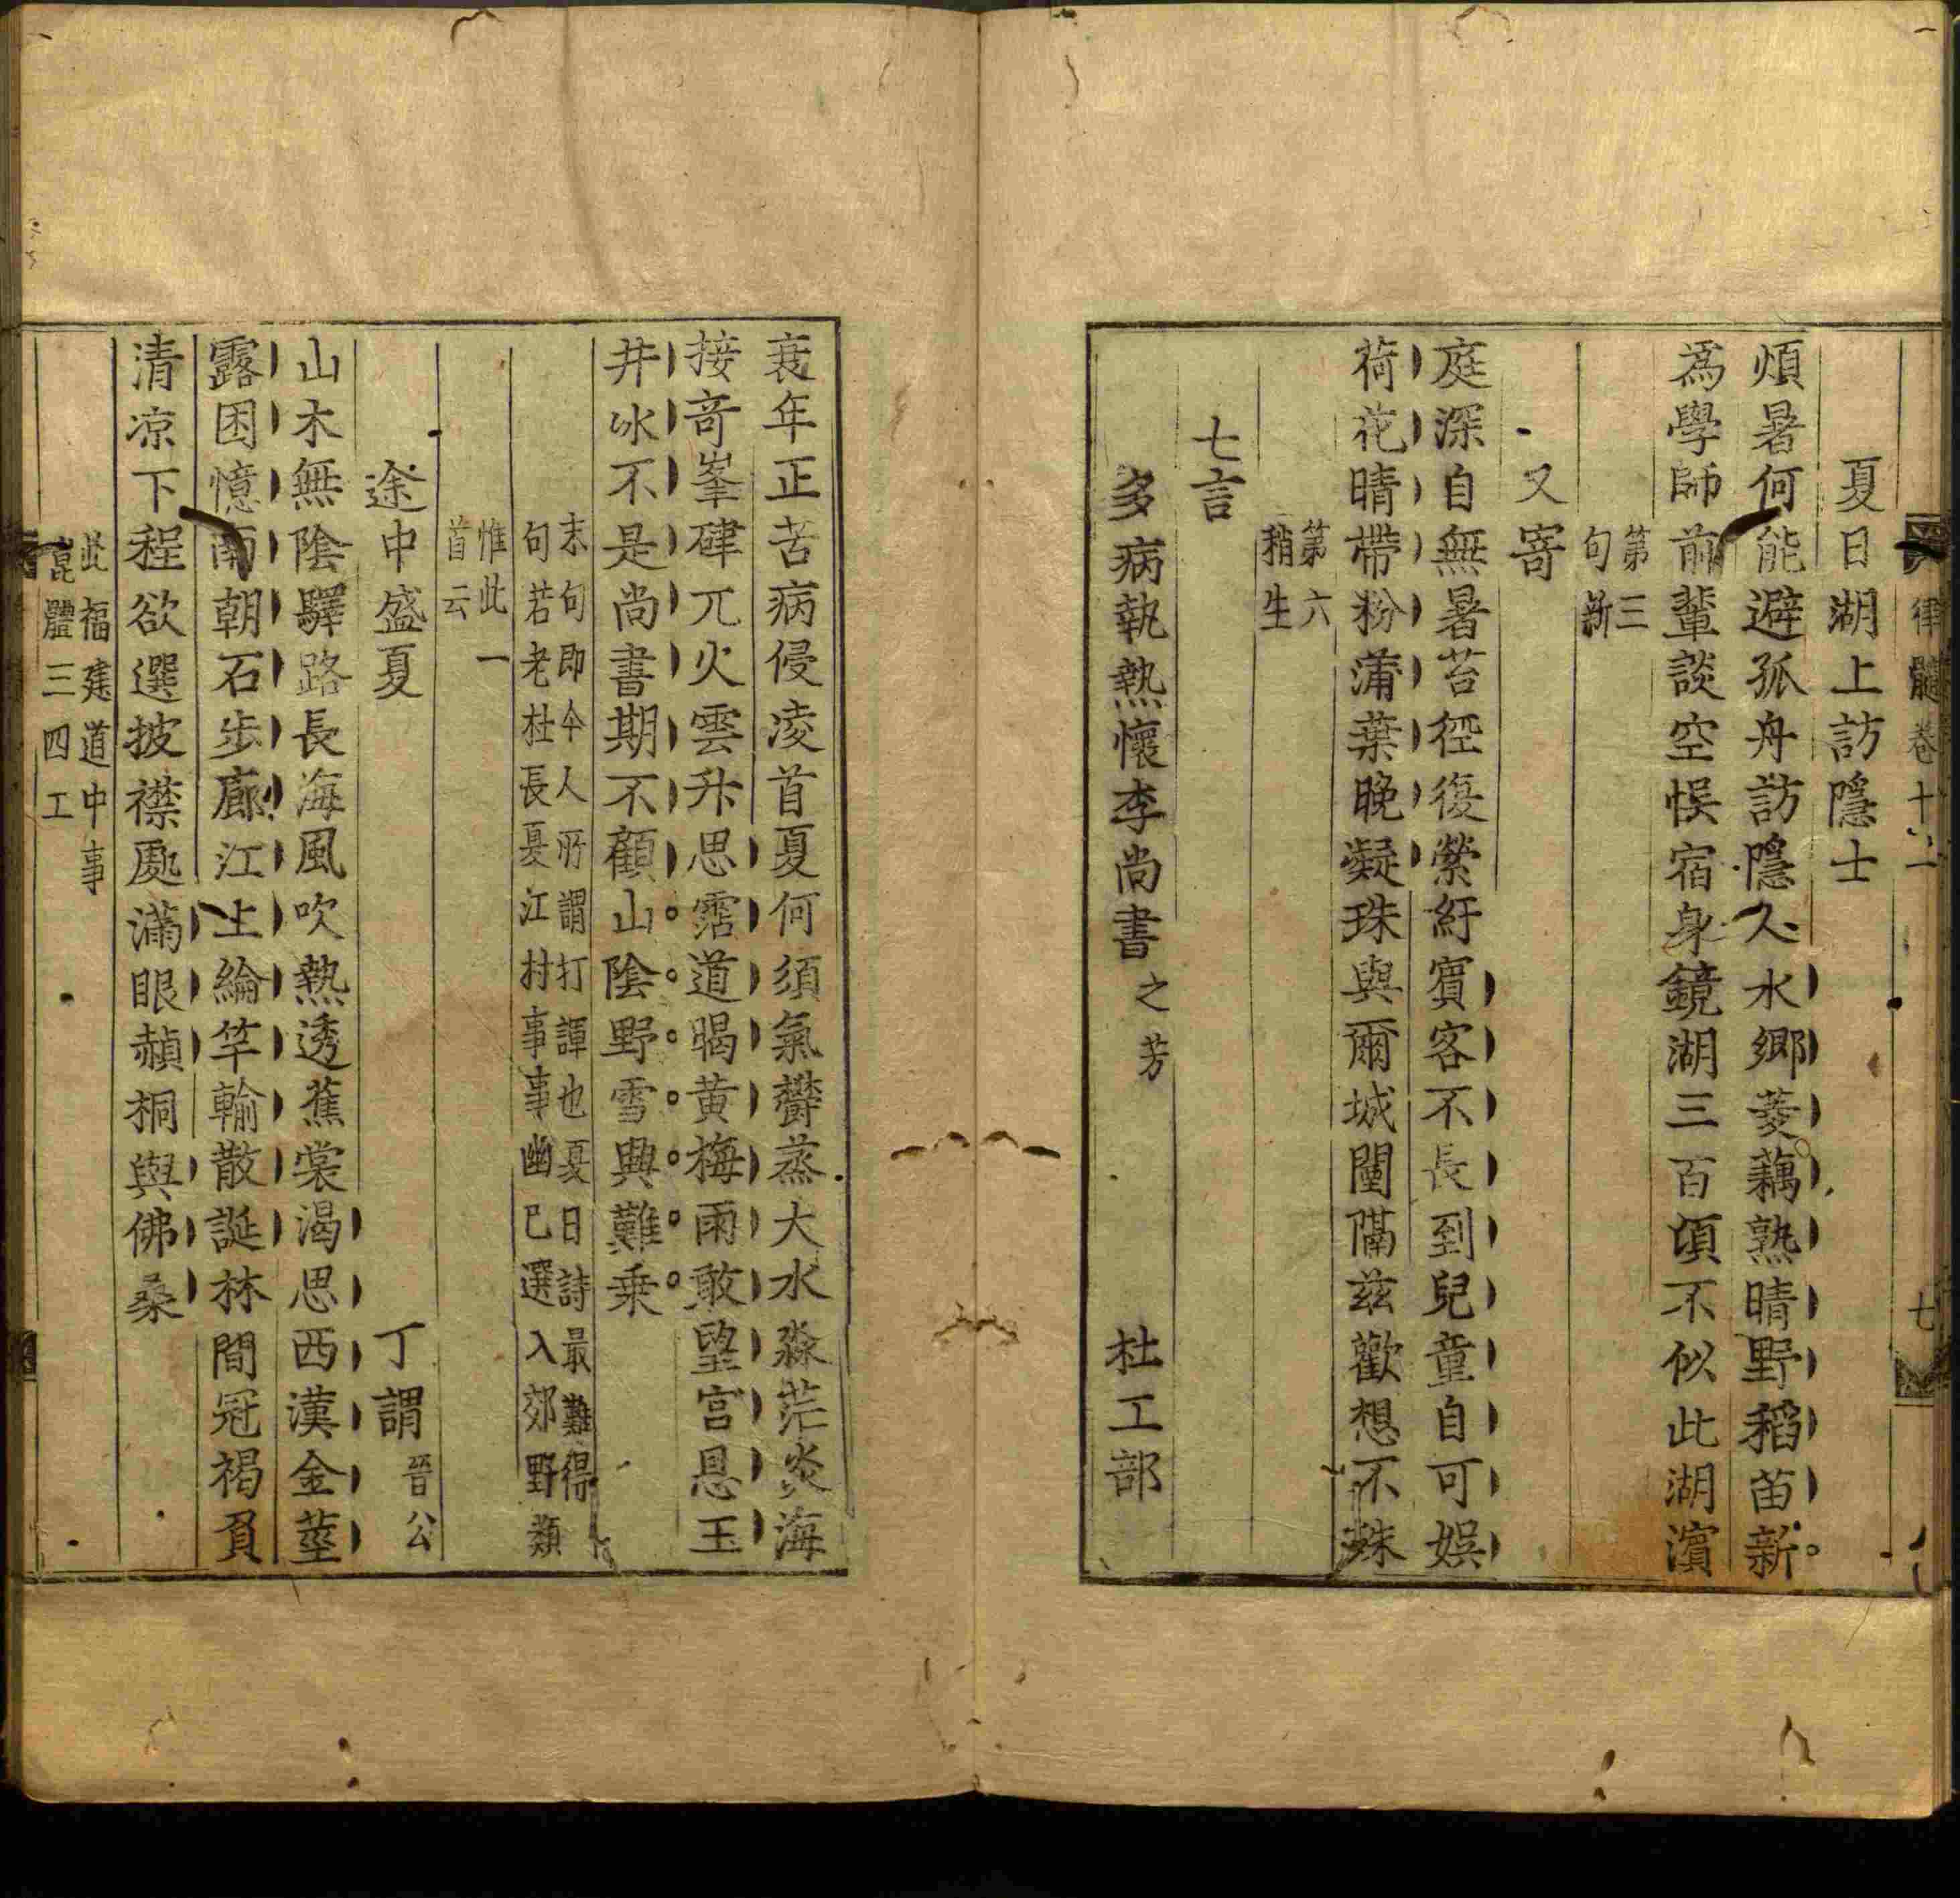 律髓卷十一
七
夏日湖上訪隱士
煩暑何能避孤舟訪隱人水鄉菱藕熟晴野稻苗新
為學師前輩談空悞宿身鏡湖三百頃不似此湖濱
第三
句新
又寄
庭深自無暑苔徑復縈紆賓客不長到兒童自可娛
荷花晴帶粉蒲葉晚凝珠與爾城闉隔兹歡想不殊
第六
稍生
七言
多病執熱懷李尚書之芳 杜工部
衰年正苦病侵凌首夏何須氣欝蒸大水淼茫炎海
接竒峯硉兀火雲升思霑道暍黄梅雨敢望宫恩玉
井冰不是尚書期不顧山陰野雪興難乗
末句即今人所謂打諢也夏日詩最難得
句若老杜長夏江村事事幽已選入郊野類
惟此一
首云
途中盛夏 丁謂晉公
山木無陰驛路長海風吹熱透蕉裳渴思西漢金莖
露困憶南朝石步廊江上綸竿輸散誕林間冠褐負
清凉下程欲選披襟處滿眼赬桐與佛桑
此福建道中事
崑體三四工